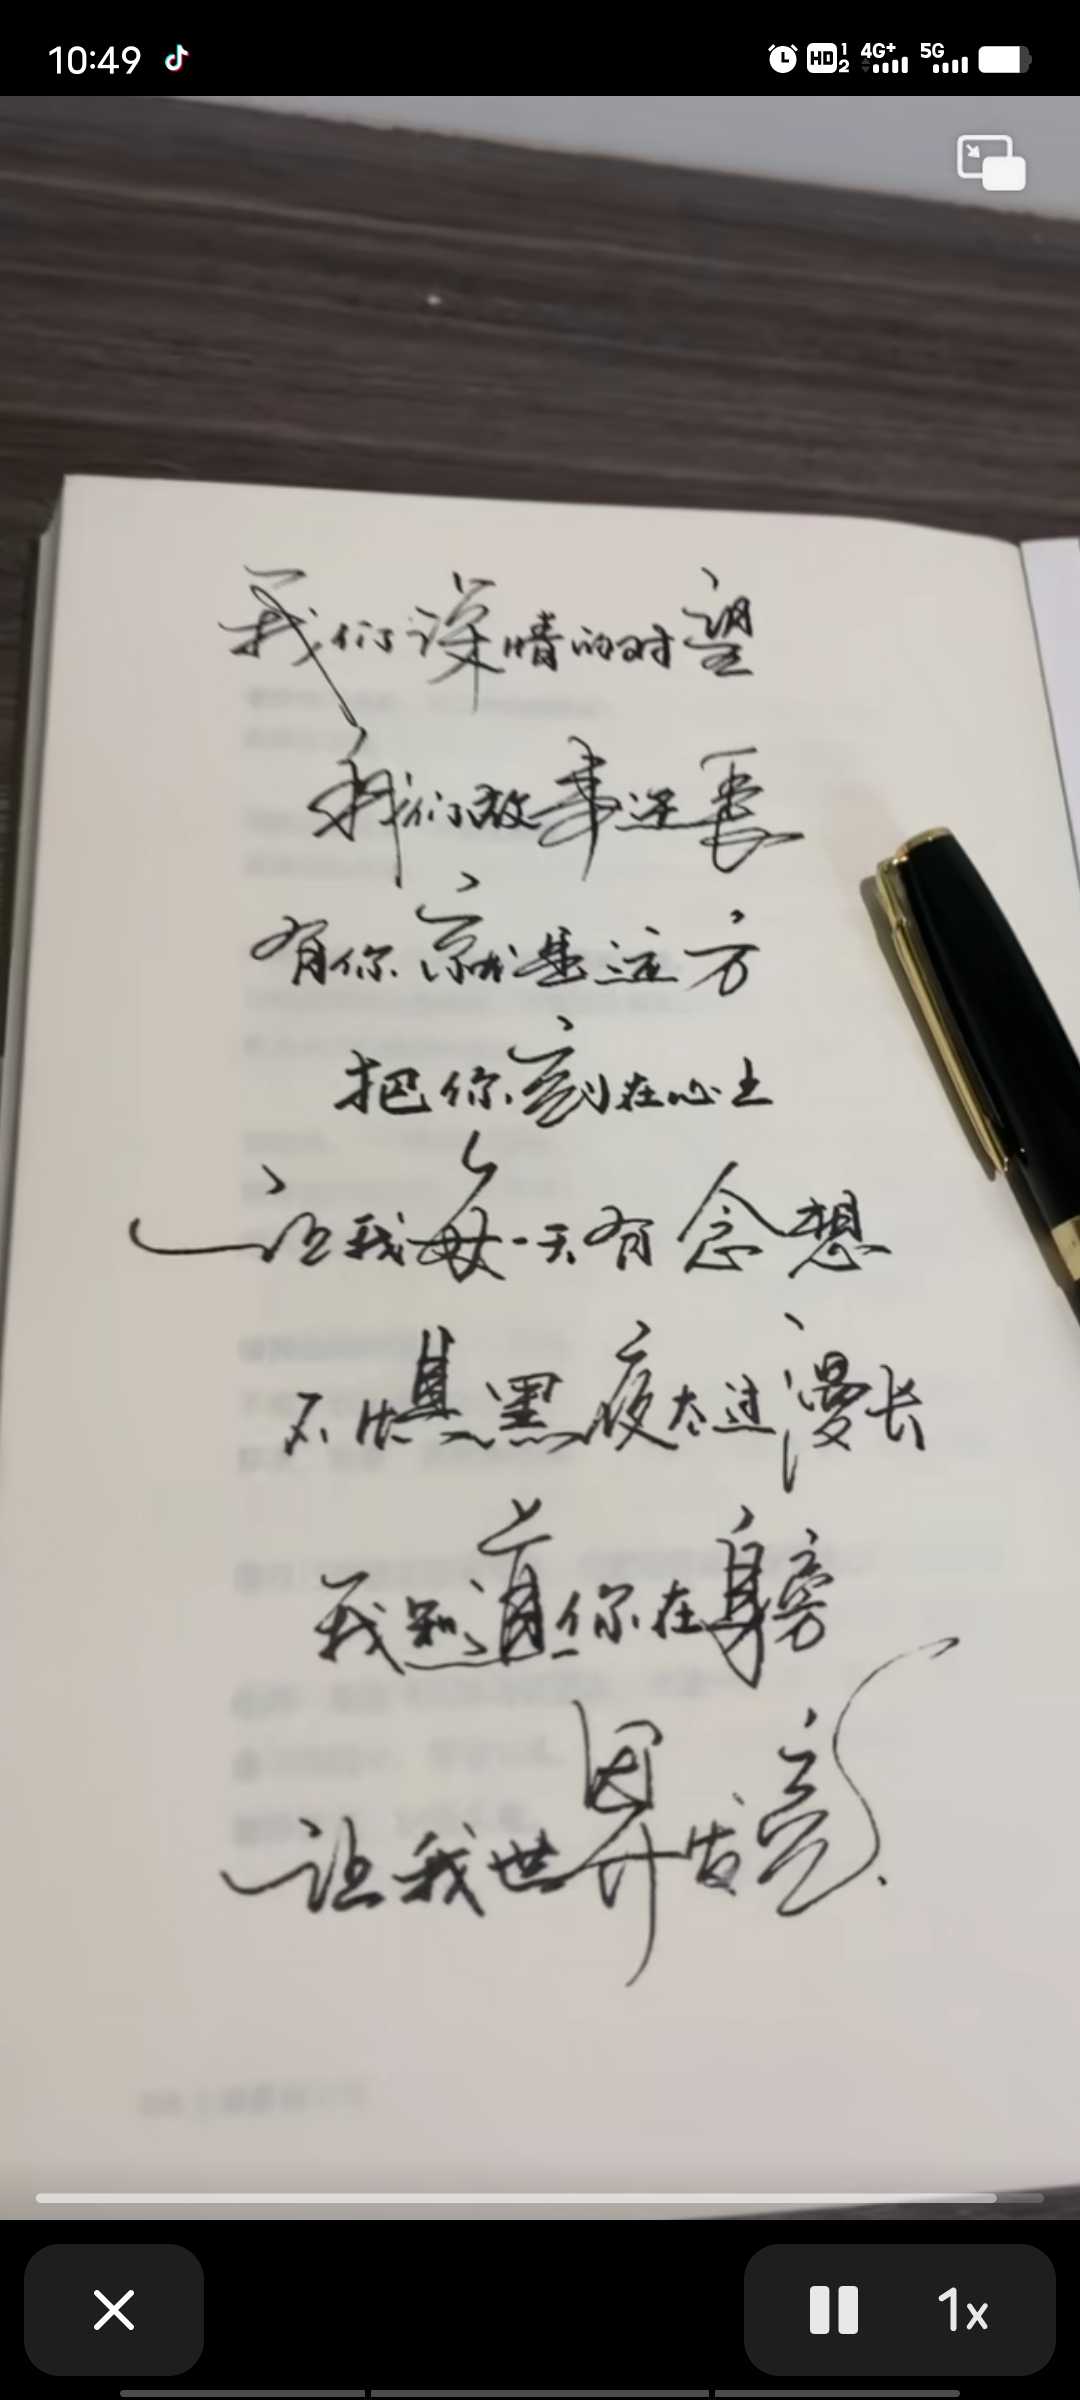 10:49 HD 1 2 4G+ 5G
我们深情的对望
我们故事还长
有你就是远方
把你刻在心上
让我每一天有念想
不惧黑夜太过漫长
我知道你在身旁
让我世界发亮
1x